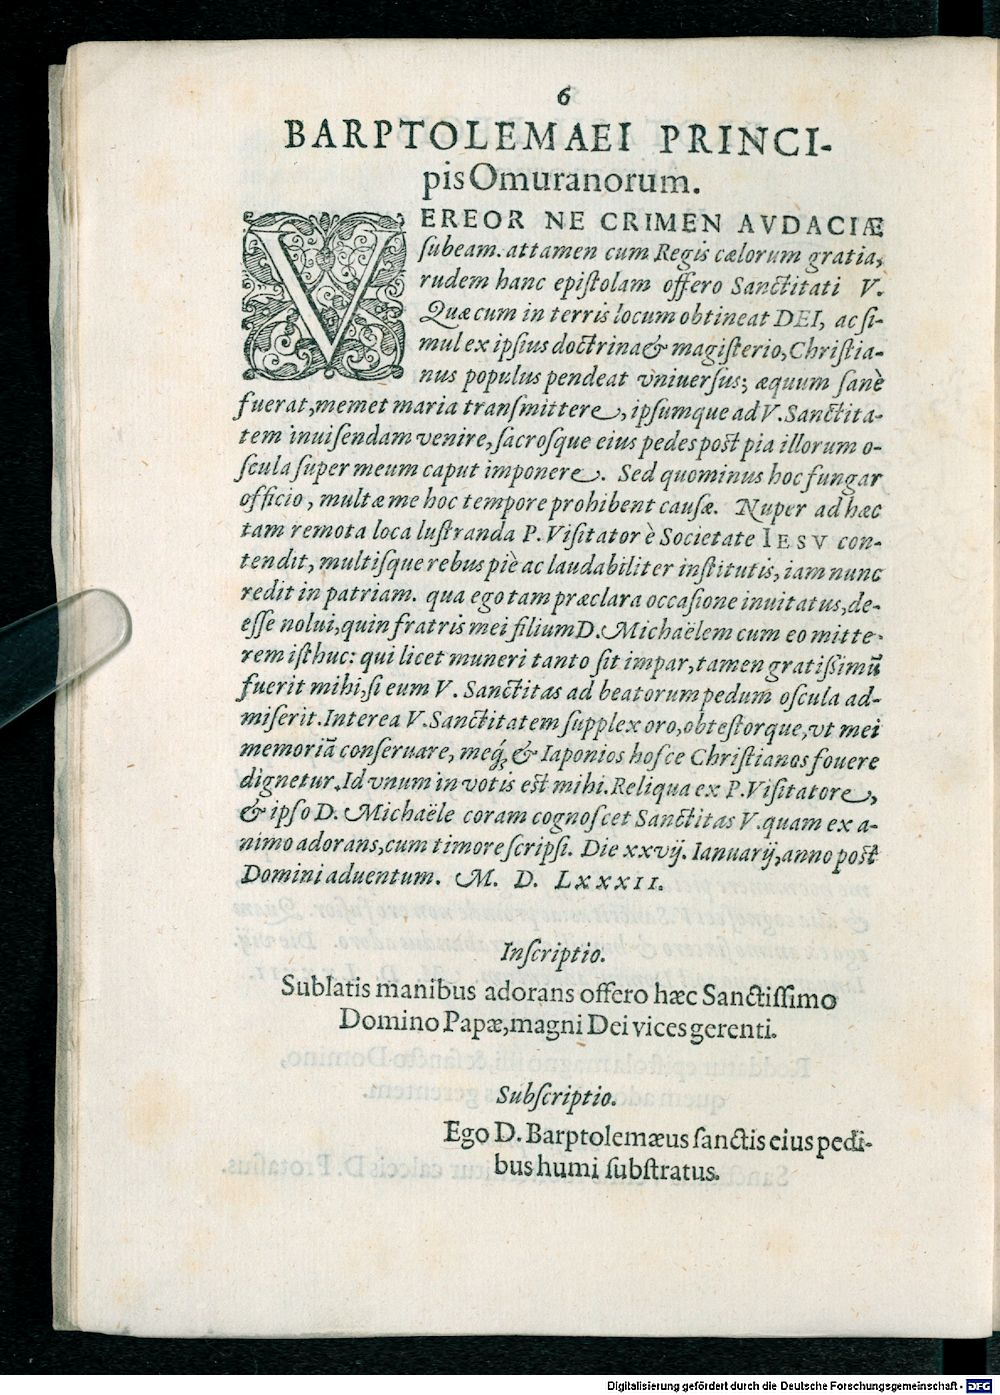 6
BARPTOLEMAEI PRINCI-
pis Omuranorum.
VEREOR NE CRIMEN AVDACIÆ
ſubeam. attamen cum Regis cælorum gratia,
rudem hanc epiſtolam offero Sanctitati V.
Quæ cum in terris locum obtineat DEI, ac ſi-
mul ex ipſius doctrina & magiſterio, Chriſtia-
nus populus pendeat vniuerſus; æquum ſanè
fuerat, memet maria tranſmittere, ipſumque ad V. Sanctita-
tem inuiſendam venire, ſacroſque eius pedes poſt pia illorum o-
ſcula ſuper meum caput imponere. Sed quominus hoc fungar
officio, multæ me hoc tempore prohibent cauſæ. Nuper ad hæc
tam remota loca luſtranda P. Viſitator è Societate IESV con-
tendit, multiſque rebus piè ac laudabiliter inſtitutis, iam nunc
redit in patriam. qua ego tam præclara occaſione inuitatus, de-
eſſe nolui, quin fratris mei filium D. Michaëlem cum eo mitte-
rem iſthuc: qui licet muneri tanto ſit impar, tamen gratiſsimū
fuerit mihi, ſi eum V. Sanctitas ad beatorum pedum oſcula ad-
miſerit. Interea V. Sanctitatem ſupplex oro, obteſtorque, vt mei
memoriā conſeruare, meq́; & Iaponios hoſce Chriſtianos fouere
dignetur. Id vnum in votis eſt mihi. Reliqua ex P. Viſitatore,
& ipſo D. Michaële coram cognoſcet Sanctitas V. quam ex a-
nimo adorans, cum timore ſcripſi. Die xxvij. Ianuarij, anno poſt
Domini aduentum. M. D. LXXXII.
Inſcriptio.
Sublatis manibus adorans offero hæc Sanctiſſimo
Domino Papæ, magni Dei vices gerenti.
Subſcriptio.
Ego D. Barptolemæus ſanctis eius pedi-
bus humi ſubſtratus.
Digitalisierung gefördert durch die Deutsche Forschungsgemeinschaft - DFG